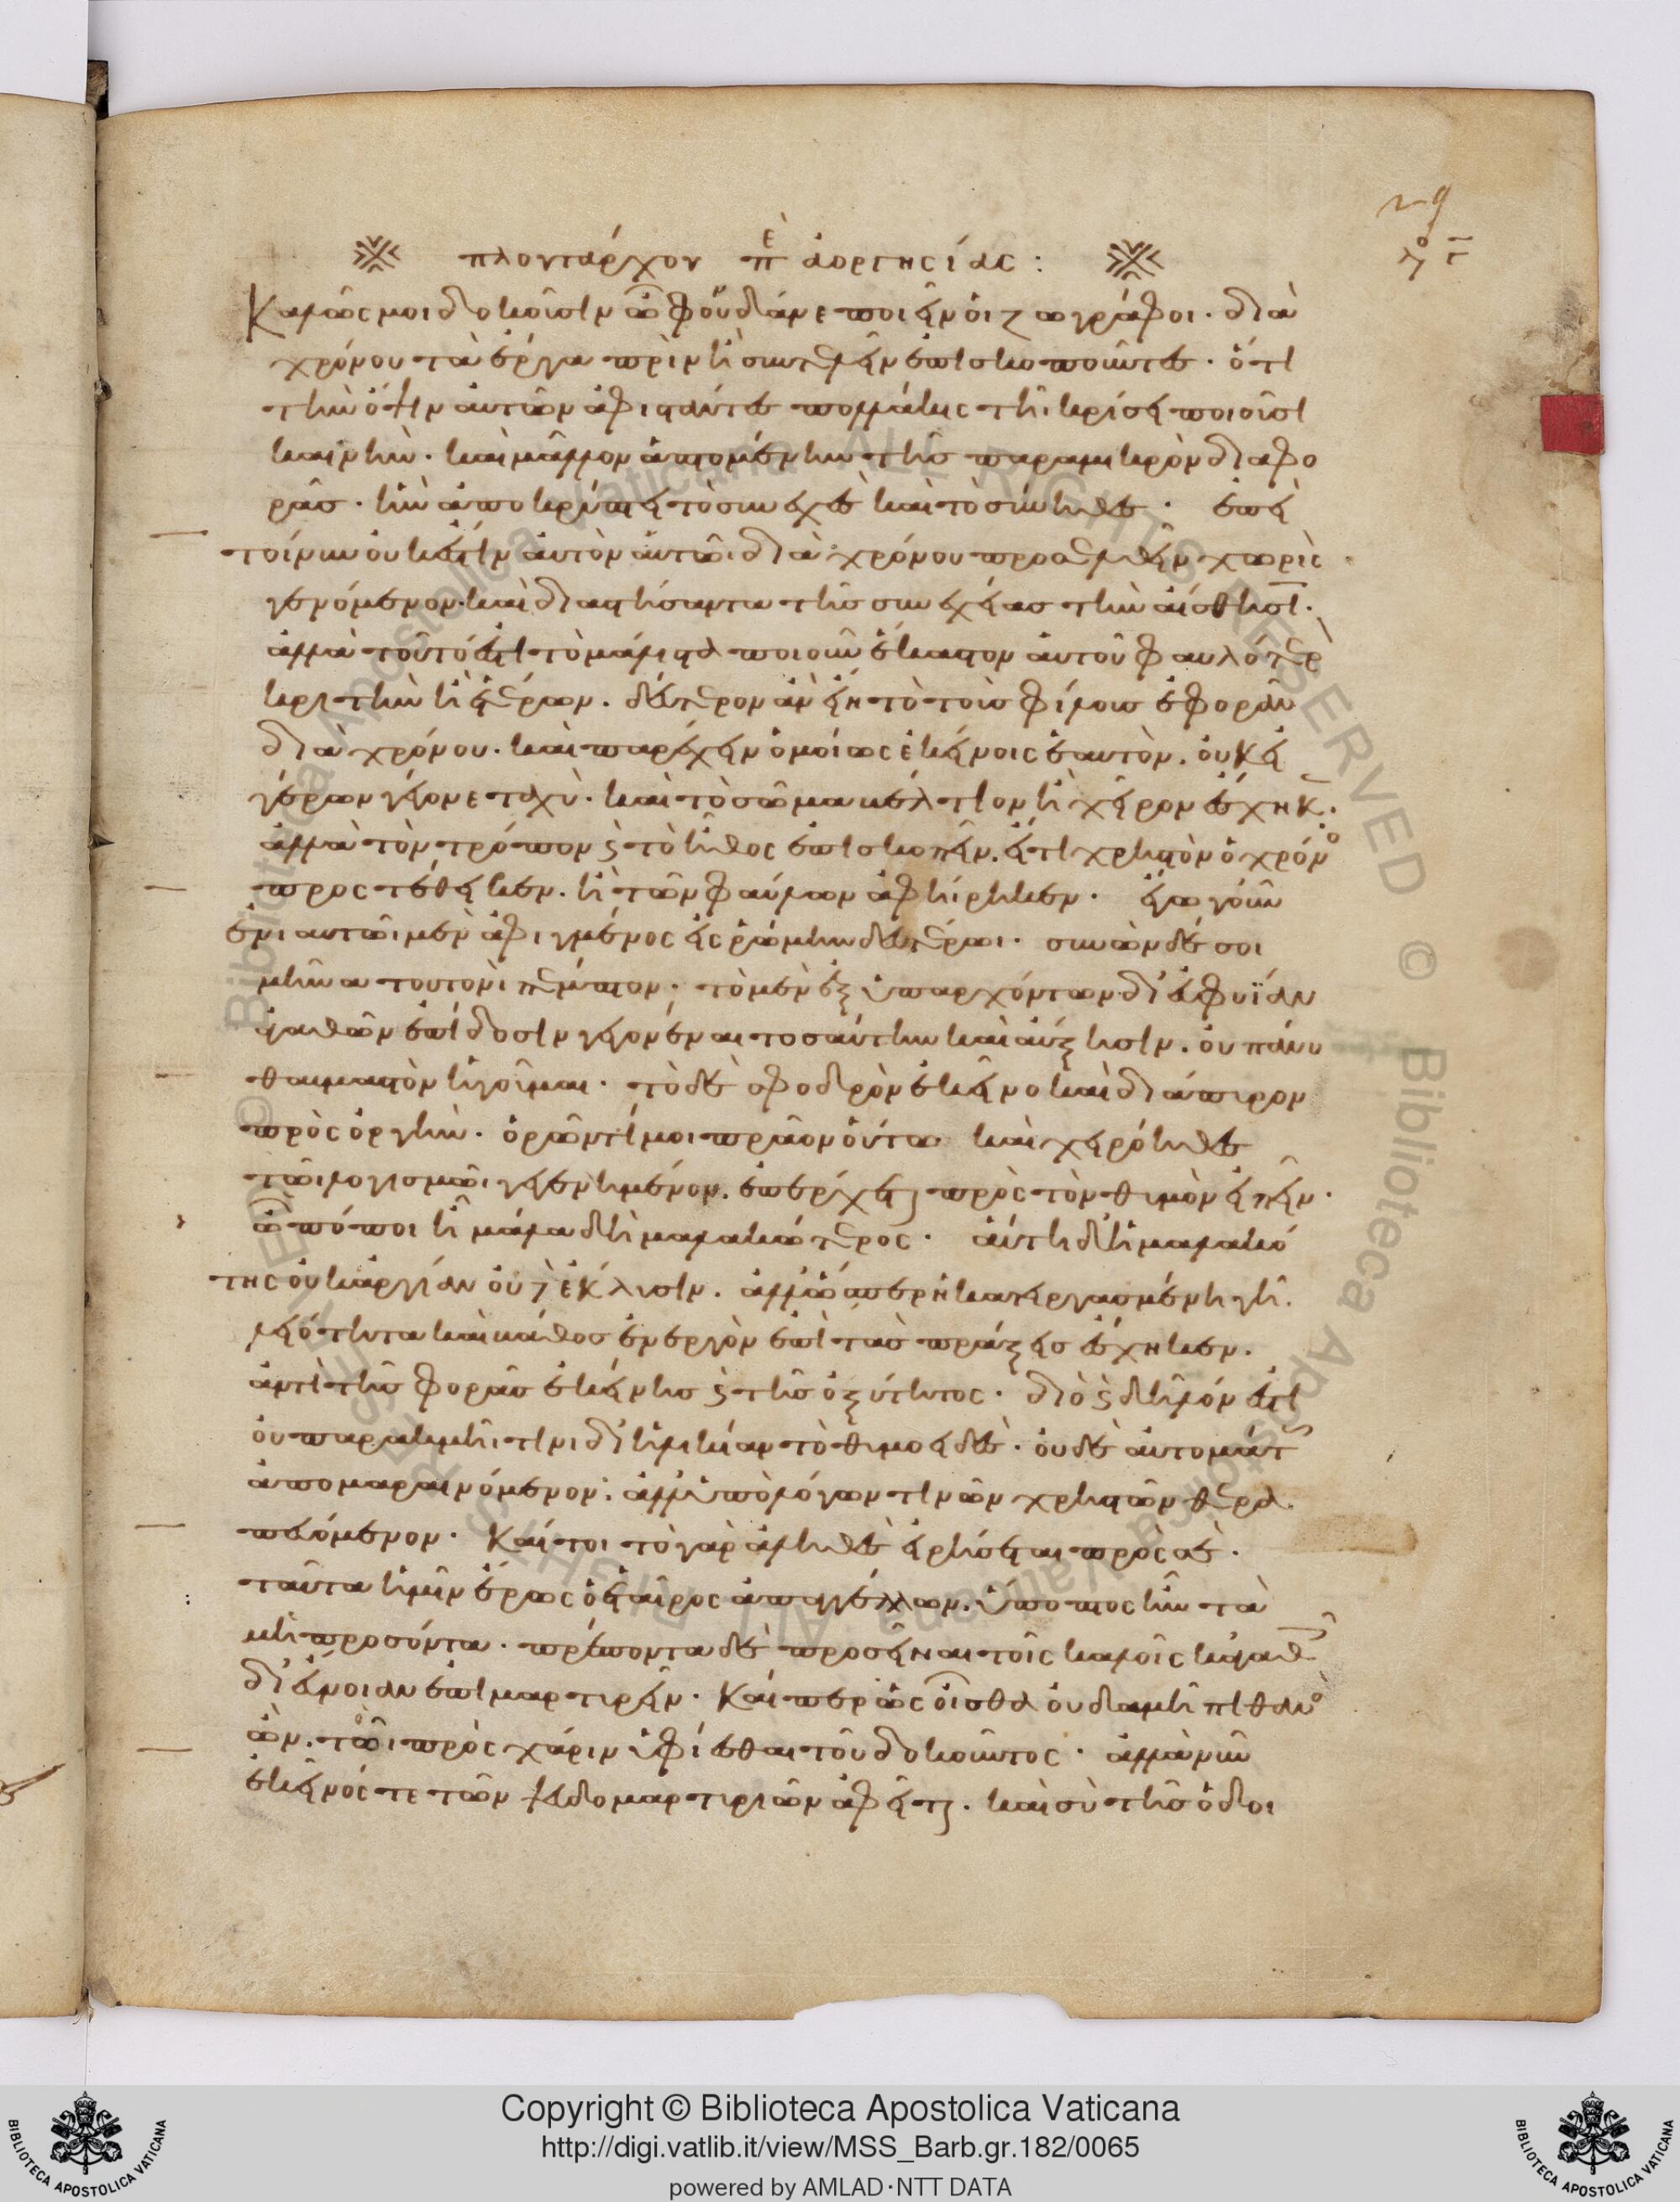 πλουτάρχου πὲ ἀοργησίας :
Καλῶς μοι δοκοῦσιν ὦ φουνδάνε ποιεῖν οἱ ζωγράφοι · διὰ
χρόνου τὰ ἔργα πρὶν ἢ συντελεῖν ἐπισκοποῦντες · ὅτι
τὴν ὄψιν αὐτῶν ἀφιστάντες πολλάκις τῆι κρίσει ποιοῦσι
καινὴν · καὶ μᾶλλον ἁπτομένην τῆς παραμικρὸν διαφο
ρᾶς · ἣν ἀποκρύπτει τὸ συνεχὲς καὶ τὸ σύνηθες · ἐπεὶ
τοίνυν οὐκ ἔστιν αὐτὸν αὑτῶι διὰ χρόνου προσελθεῖν χωρὶς
γενόμενον · καὶ διαστήσαντα τῆς συνεχείας τὴν αἴσθησι ·
ἀλλὰ τοῦτό ἐστι τὸ μάλιστα ποιοῦν ἕκαστον αὑτοῦ φαυλότερ
κριτὴν ἢ ἑτέρων · δεύτερον ἂν εἴη τὸ τοὺς φίλους ἐφορᾶν
διὰ χρόνου · καὶ παρέχειν ὁμοίως ἐκείνοις ἑαυτὸν · οὐκ εἰ
γέρων γέγονε ταχὺ · καὶ τὸ σῶμα βέλτιον ἢ χεῖρον ἔσχηκ ·
ἀλλὰ τὸν τρόπον ϗ τὸ ἦθος ἐπισκοπεῖν · εἴ τι χρηστὸν ὁ χρόνο
προστέθεικεν · ἢ τῶν φαύλων ἀφήρηκεν · ἐγὼ γοῦν
ἐνιαυτῶι μὲν ἀφιγμένος εἰς ῥώμην δευτέρωι · συνὼν δέ σοι
μῆνα τουτονὶ πέμπτον · τὸ μὲν ἐξ ὑπαρχόντων δι' εὐφυΐαν
ἀγαθῶν ἐπίδοσιν γεγονέναι τοσαύτην καὶ αὔξησιν · οὐ πάνυ
θαυμαστὸν ἡγοῦμαι · τὸ δὲ σφοδρὸν ἐκεῖνο καὶ διάπυρον
πρὸς ὀργὴν · ὁρῶντί μοι πρᾶον οὕτω καὶ χειρόηθες
τῶι λογισμῶι γεγενημένον · ἐπέρχεται πρὸς τὸν θυμὸν εἰπεῖν ·
ὢ πόποι ἦ μάλα δὴ μαλακώτερος · αὕτη δ' ἡ μαλακό
της οὐκ ἀργίαν οὐδ' ἔκλυσιν · ἀλλ' ὥσπερ ἡ κατειργασμένη γῆ ·
λειότητα καὶ βάθος ἐνεργὸν ἐπὶ τὰς πράξεις ἔσχηκεν ·
ἀντὶ τῆς φορᾶς ἐκείνης ϗ τῆς ὀξύτητος · διὸ ϗ δῆλόν ἐστι
οὐ παρακμῆι τινι δι' ἡλικίαν τὸ θυμοειδὲς · οὐδὲ αὐτομάτ
ἀπομαραινόμενον · ἀλλ' ὑπὸ λόγων τινῶν χρηστῶν θερα
πευόμενον · Καίτοι τὸ γὰρ ἀληθὲς εἰρήσεται πρὸς σὲ ·
ταῦτα ἡμῖν ἔρως ὁ ἑταῖρος ἀπαγγέλλων · ὕποπτος ἦν τὰ
μὴ προσόντα · πρέποντα δὲ προσεῖναι τοῖς καλοῖς κἀγαθ
δι' εὔνοιαν ἐπιμαρτυρεῖν · Καίπερ ὡς οἶσθα οὐδαμῆ πιθανο
ὢν · τῶι πρὸς χάριν ὑφίεσθαι τοῦ δοκοῦντος · ἀλλὰ νῦν
ἐκεῖνός τε τῶν ψευδομαρτυριῶν ἀφεῖται · καὶ σὺ τῆς ὁδοι
Copyright © Biblioteca Apostolica Vaticana
http://digi.vatlib.it/view/MSS_Barb.gr.182/0065
powered by AMLAD·NTT DATA